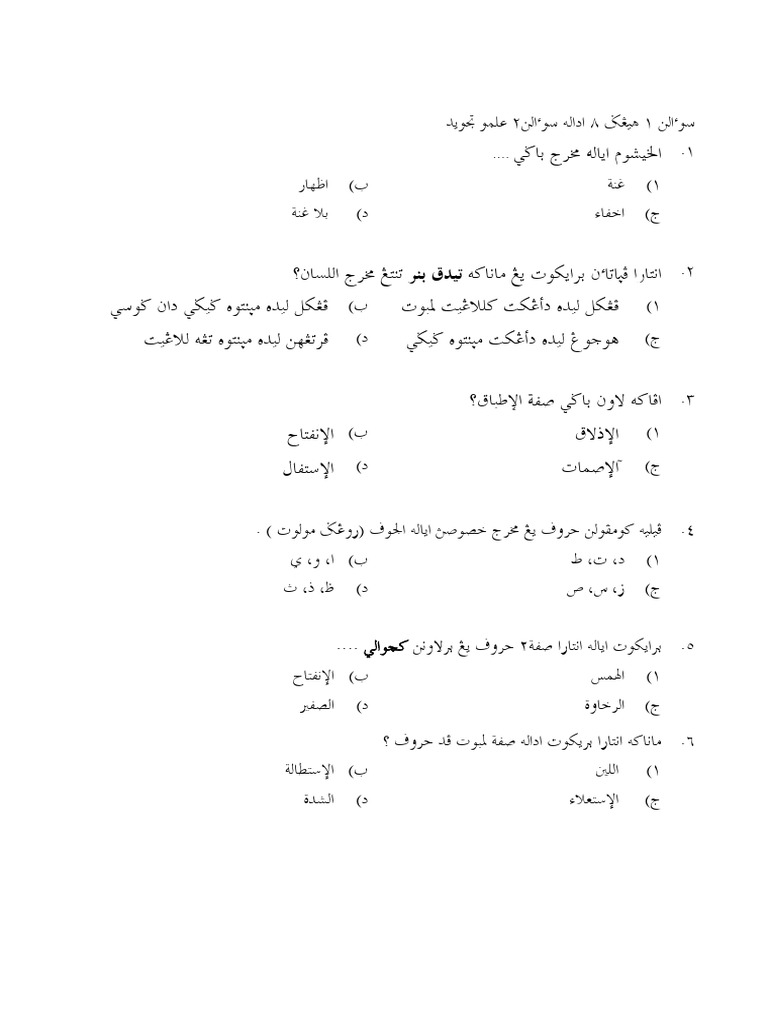 سوءالن ١ هيڠݢ ٨ اداله سوءالن٢ علمو تجويد
٠١ الخيشوم اياله مخرج باݢي ....
١) غنة ب) اظهار
ج) اخفاء د) بلا غنة
٠٢ انتارا ڤپاتاءن برايكوت يڠ ماناكه تيدق بنر تنتڠ مخرج اللسان؟
١) ڤڠكل ليده دأڠكت كللاڠيت لمبوت ب) ڤڠكل ليده مپنتوه ݢيݢي دان ݢوسي
ج) هوجوڠ ليده دأڠكت مپنتوه ݢيݢي د) ڤرتڠهن ليده مپنتوه تڠه للاڠيت
٠٣ اڤاكه لاون باݢي صفة الإطباق؟
١) الإذلاق ب) الإنفتاح
ج) آلإصمات د) الإستفال
٠٤ ڤيليه كومڤولن حروف يڠ مخرج خصوصڽ اياله الجوف (روڠݢ مولوت ) .
١) د، ت، ط ب) ا، و، ي
ج) ز، س، ص د) ظ، ذ، ث
٠٥ برايكوت اياله انتارا صفة٢ حروف يڠ برلاونن كچوالي ....
١) الهمس ب) الإنفتاح
ج) الرخاوة د) الصفير
٠٦ ماناكه انتارا بريكوت اداله صفة لمبوت ڤد حروف ؟
١) اللين ب) الإستطالة
ج) الإستعلاء د) الشدة